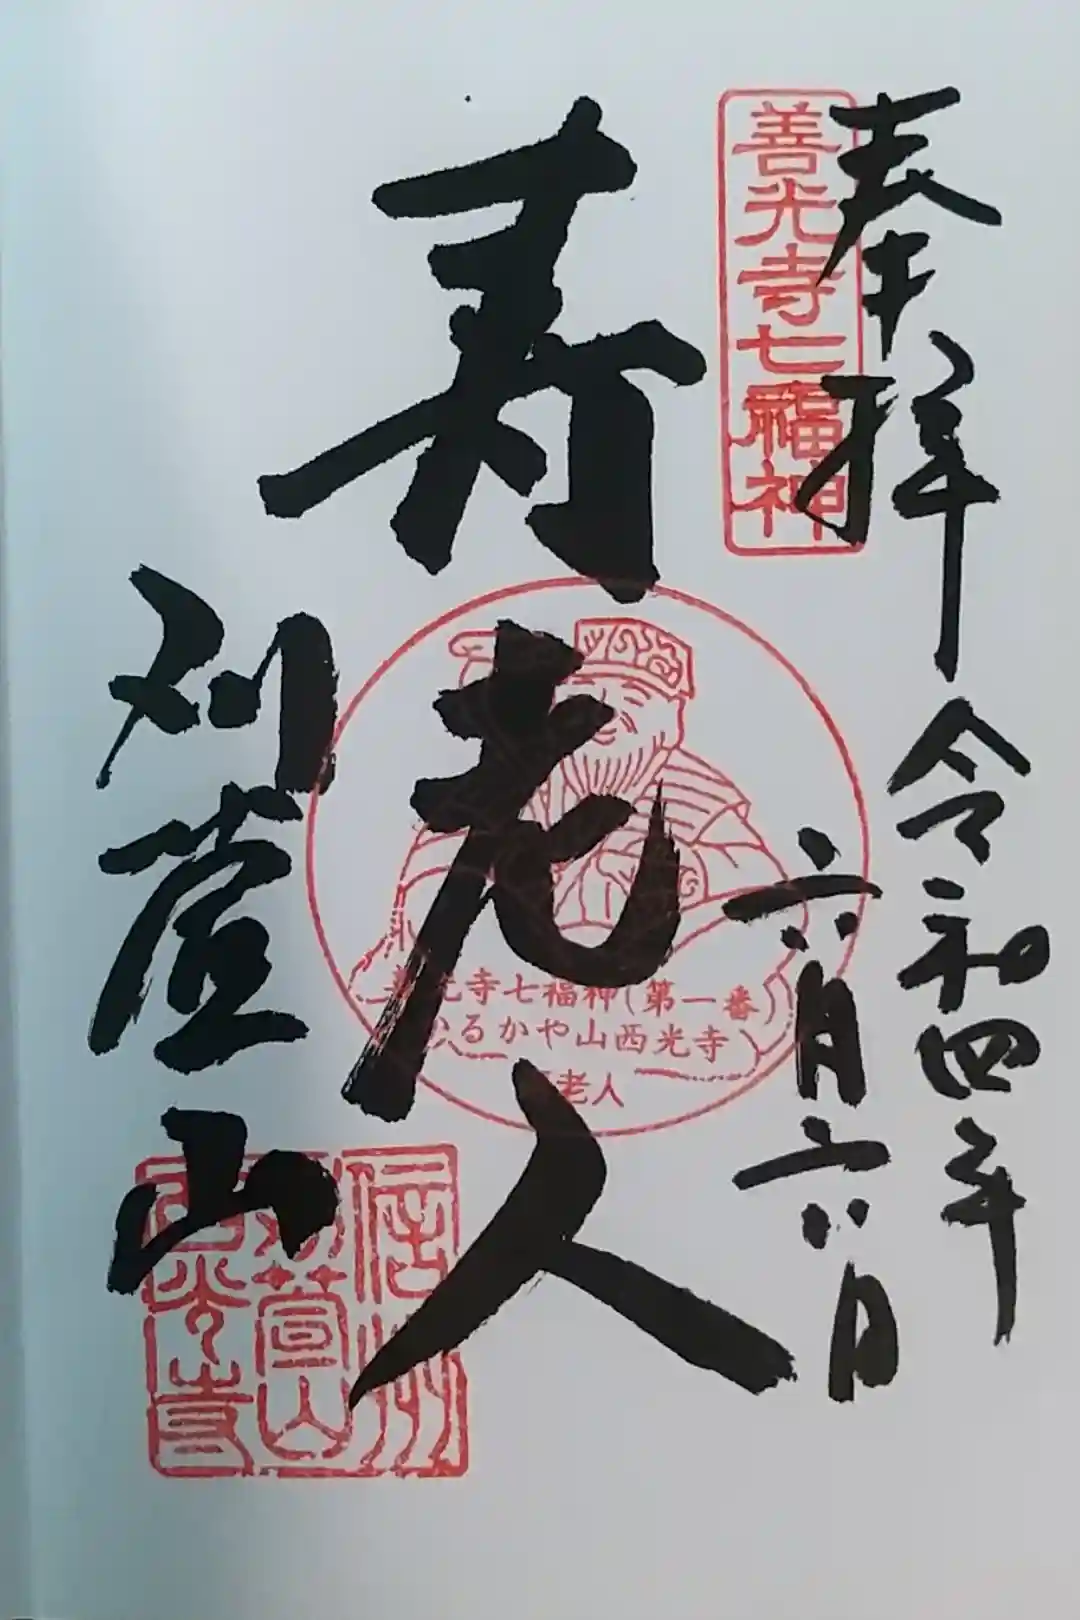 奉拝
令和四年
六月六日
善光寺七福神
寿老人
善光寺七福神(第一番)
かるかや山西光寺
老人
刈萱山
信州
刈萱山
西光寺